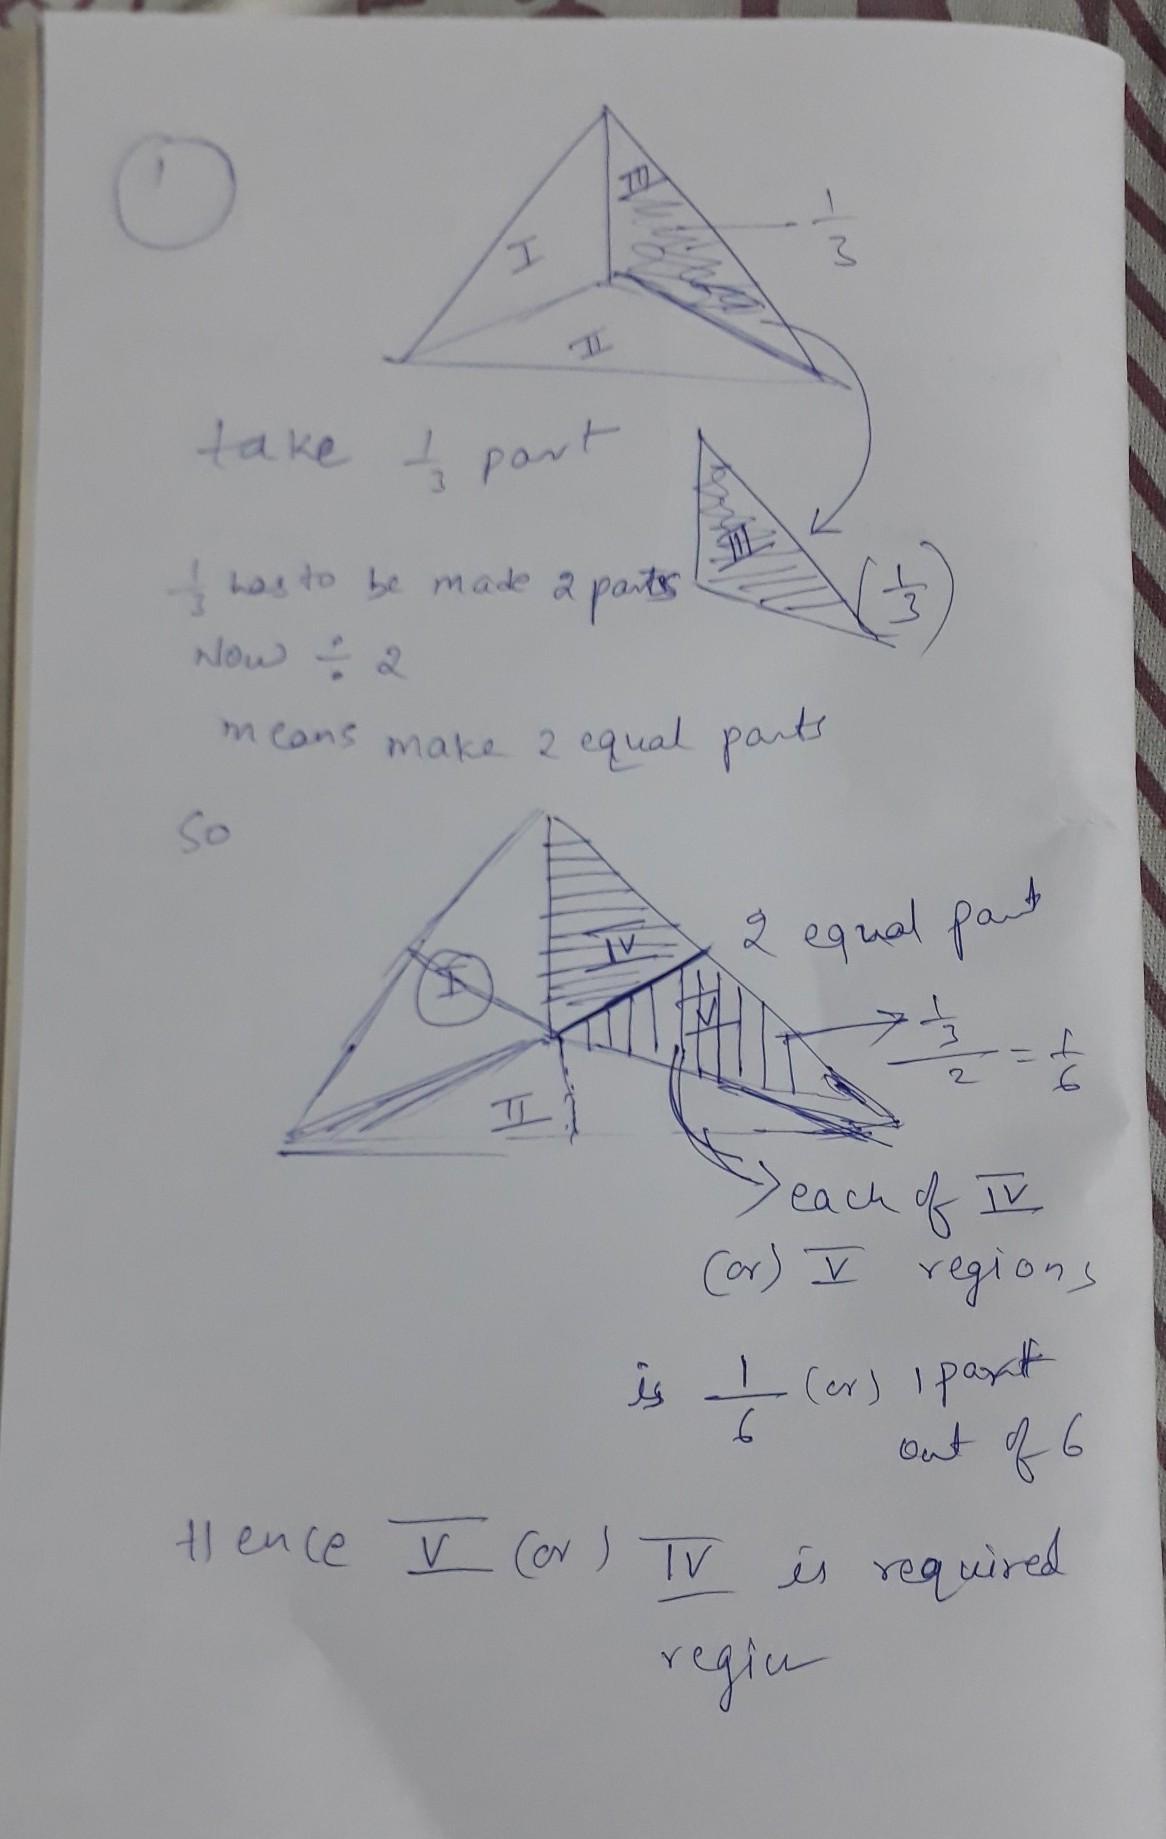 1
III
1/3
I
II
take 1/3 part
III
(1/3)
1/3 has to be made 2 parts
Now ÷ 2
means make 2 equal parts
So
2 equal part
IV
I
V
1/3 / 2 = 1/6
II
each of IV
(or) V regions
is 1/6 (or) 1 part
out of 6
Hence V (or) IV is required